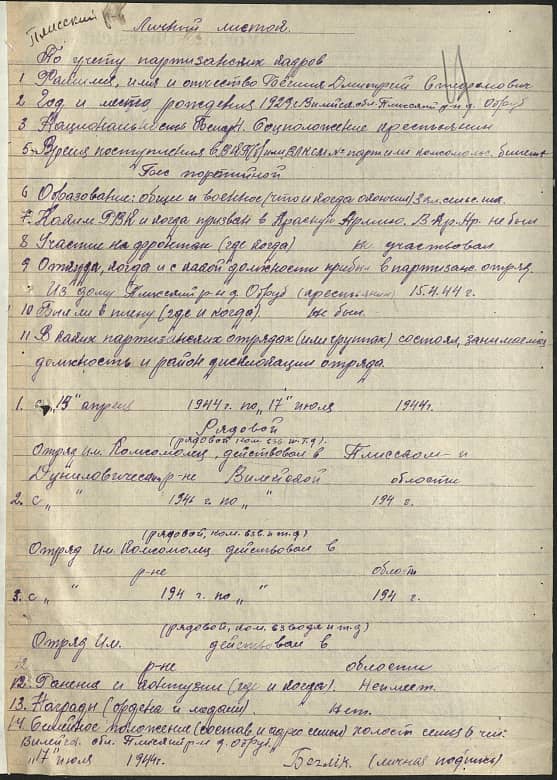 Плисский р-н
Личный листок.
По учёту партизанских кадров
1 Фамилия, имя и отчество Дмитрий Степанович
2 Год и место рождения 1929 г Вилейск. обл. Плисский р-н д. Обруб
3 Национальность Белар. Соцположение крестьянин
5. Время поступления в ВКП(б) или ВЛКСМ № парт или комсомол. билета
Бес партийной
6 Образование: общее и военное (что и когда окончил) 3 кл. сельс. шк.
7. Каким РВК и когда призван в Красную Армию. В Кр. Ар. не был
8 Участие на фронтах (где когда) не участвовал
9 Откуда, когда и с какой должности прибыл в партизанс. отряд.
Из дому Плисский р-н д. Обруб (крестьянин) 15.4.44 г.
10 Был ли в плену (где и когда). не был.
11 В каких партизанских отрядах (или группах) состоял, занимаемая
должность и район дислокации отряда.
1. с "15" апреля 1944 г. по "17" июля 1944 г.
Рядовой
(рядовой ком. взв. и т.д.)
Отряд им. Комсомолец, действовал в Плисском и
Дуниловичском р-не Вилейской области
2. с " " 194 г. по " " 194 г.
(рядовой, ком. взв. и т.д)
Отряд им. Комсомолец действовал в
р-не област
3. с " " 194 г. по " " 194 г.
(рядовой, ком. взвода и т.д)
Отряд им. действовал в
р-не области
12. Ранения и контузии (где и когда). Не имеет.
13. Награды (ордена и медали). нет.
14. Семейное положение (состав и адрес семьи) холост семья 6 чел.
Вилейск. обл. Плисский р-н д. Обруб.
"17" июля 1944 г. (личная подпись)